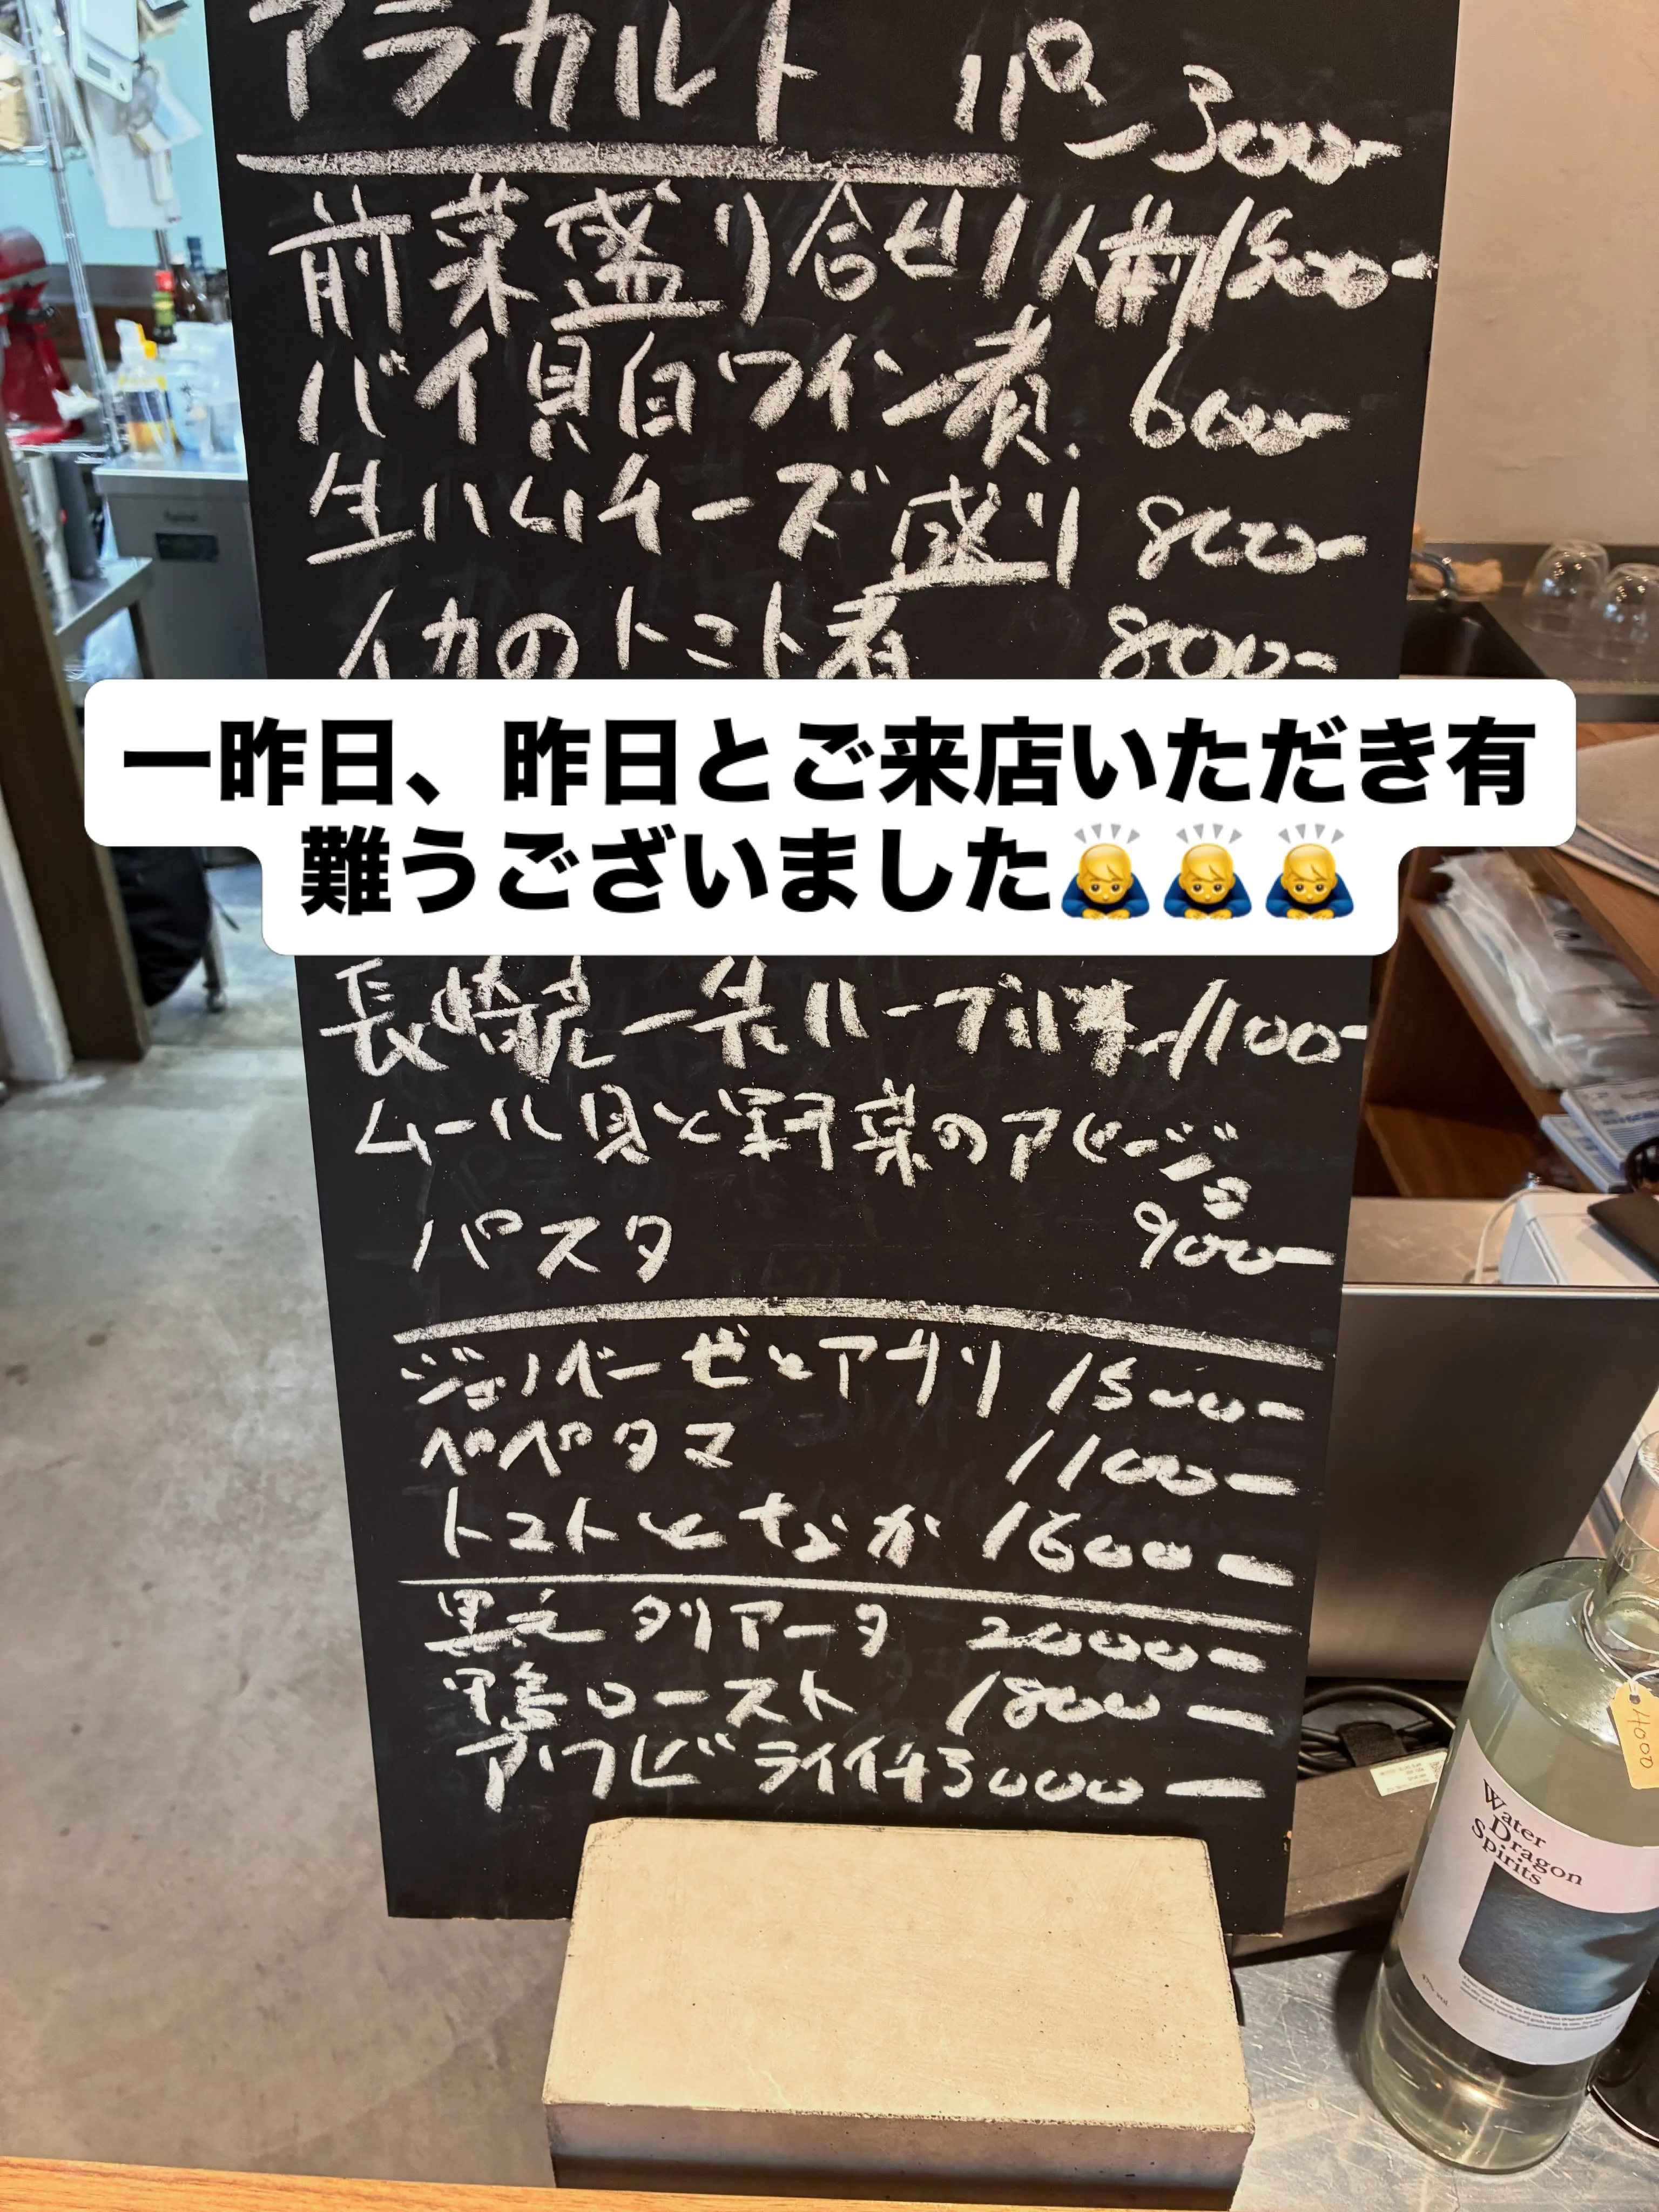 アラカルト パン 300-
前菜盛り合せ1人前1800-
バイ貝白ワイン煮 600-
生ハムチーズ盛り 800-
イカのトマト煮 800-
一昨日、昨日とご来店いただき有
難うございました🙇🙇🙇
長崎産一先ハーブ 1100-
ムール貝と野菜のアヒージョ
900-
パスタ
ジェノベーゼとアサリ 1500-
ペペタマ 1100-
トマトと 1600-
タリアータ 2000-
鴨ロースト 1800-
アワビ 3000-
4000
Water
Dragon
Spirits